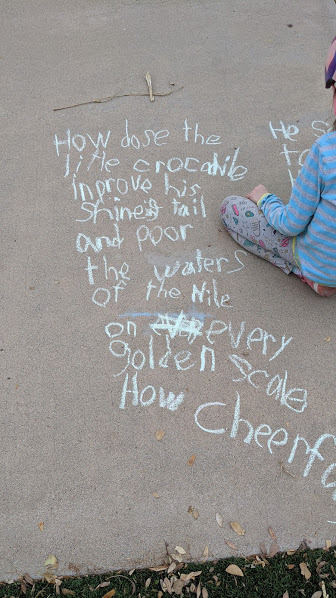 How dose the
little crocadile
Inprove his
shineg tail
and poor
the waters
of the Nile
on every
golden scale
How Cheerfo
He s
to